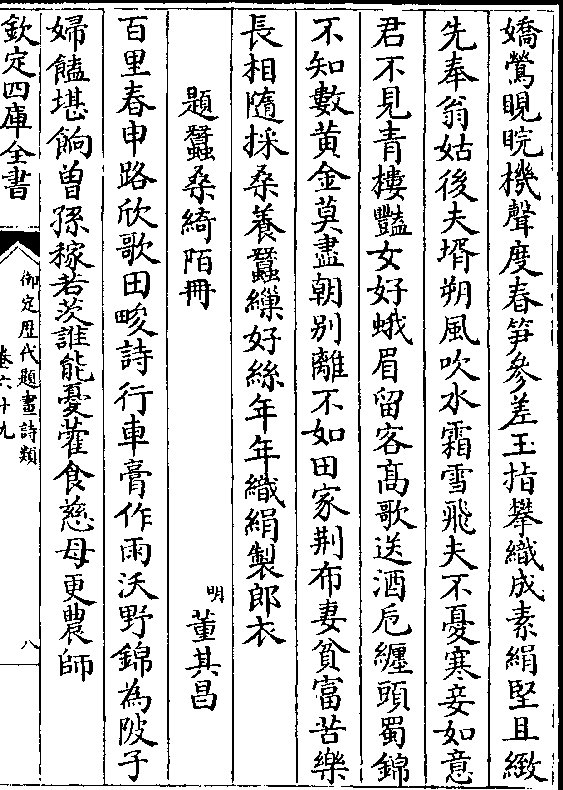 嬌鶯睍睆機聲度春笋參差玉指攀織成素絹堅且緻
先奉翁姑後夫壻朔風吹水霜雪飛夫不憂寒妾如意
君不見青樓豔女好蛾眉留客髙歌送酒巵纏頭蜀錦
不知數黄金莫盡朝别離不如田家荆布妻貧富苦樂
長相隨採桑養蠶繅好絲年年織絹製郎衣
題蠶桑綺陌冊
明 董其昌
百里春申路欣歌田畯詩行車膏作雨沃野錦為陂子
婦饁堪餉曽孫稼若茨誰能憂藿食慈母更農師
欽定四庫全書
御定歴代題畫詩類
卷六十九
八